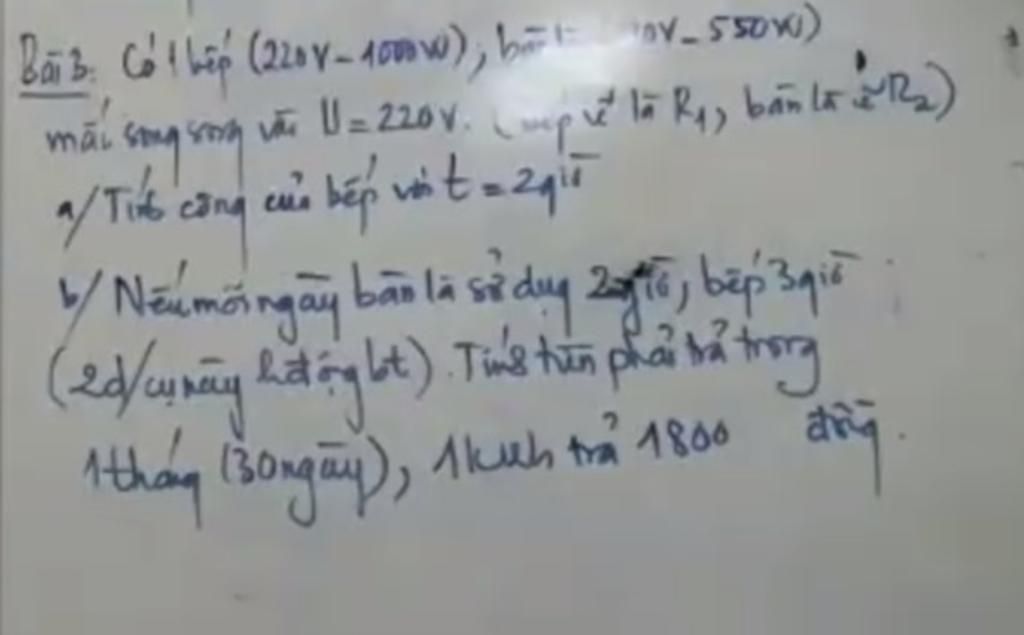 Bài 3: Có 1 bếp (220V - 1000W), bàn là 0V - 550W)
mắc song song vào U = 220V. (bếp vẽ là R1, bàn là vẽ R2)
a/ Tính công của bếp với t = 2 giờ
b/ Nếu mỗi ngày bàn là sử dụng 2 giờ, bếp 3 giờ
(2d/cụ này hđộng bt). Tính tiền phải trả trong
1 tháng (30 ngày), 1 kWh trả 1800 đồng.